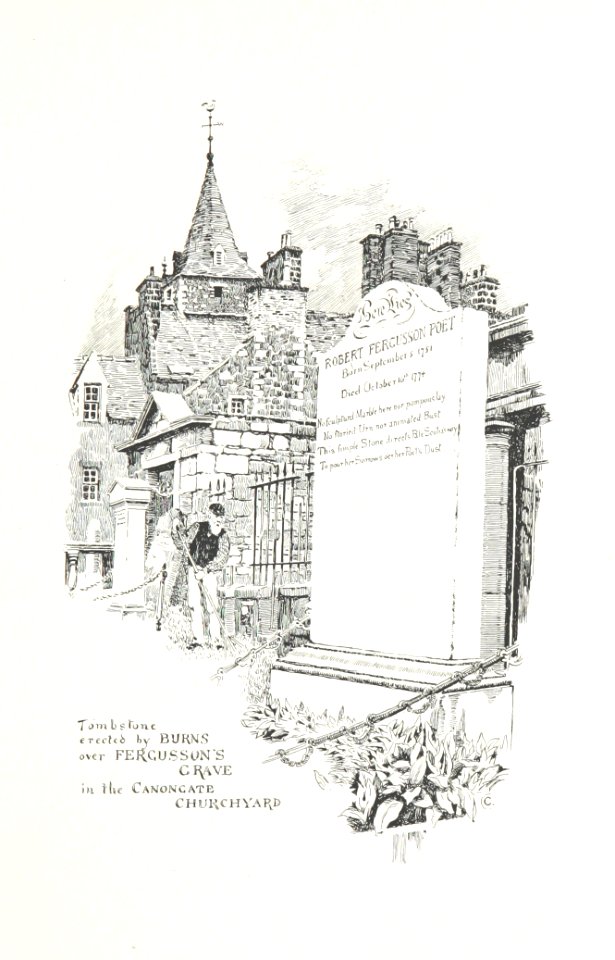 Here lies
ROBERT FERGUSSON POET
Born September 5 1751
Died October 16th 1774
No Sculptured Marble here nor pompous lay
No storied Urn nor animated Bust
This simple Stone directs Pale Scotia's way
To pour her Sorrows o'er her Poet's Dust
Tombstone
erected by BURNS
over FERGUSSON'S
GRAVE
in the CANONGATE
CHURCHYARD
C.